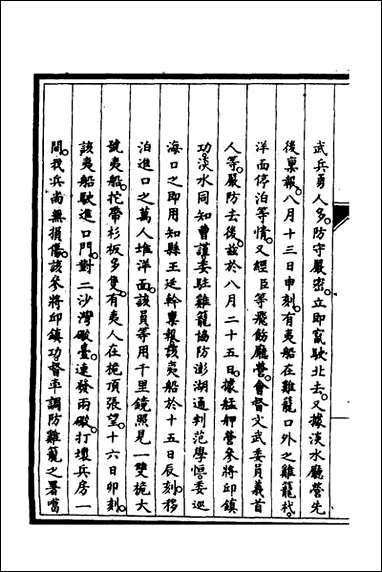 武兵勇人多防守嚴密立即竄駛北去又據淡水廳營先
後稟報八月十三日申刻有夷船在雞籠口外之雞籠杙
洋面停泊等情又經臣等飛飭廳營會督文武委員義首
人等嚴防去後茲於八月二十五日據艋舺營參將邱鎮
功淡水同知曹謹委駐雞籠協防澎湖通判范學恒委巡
海口之即用知縣王廷幹稟報該夷船於十五日辰刻移
泊進口之萬人堆洋面該員等用千里鏡照見一雙桅大
號夷船拕帶杉板多隻有夷人在桅頂張望十六日卯刻
該夷船駛進口門對二沙灣礮臺連發兩礮打壞兵房一
間我兵尚無損傷該參將邱鎮功督平調防雞籠之署噶